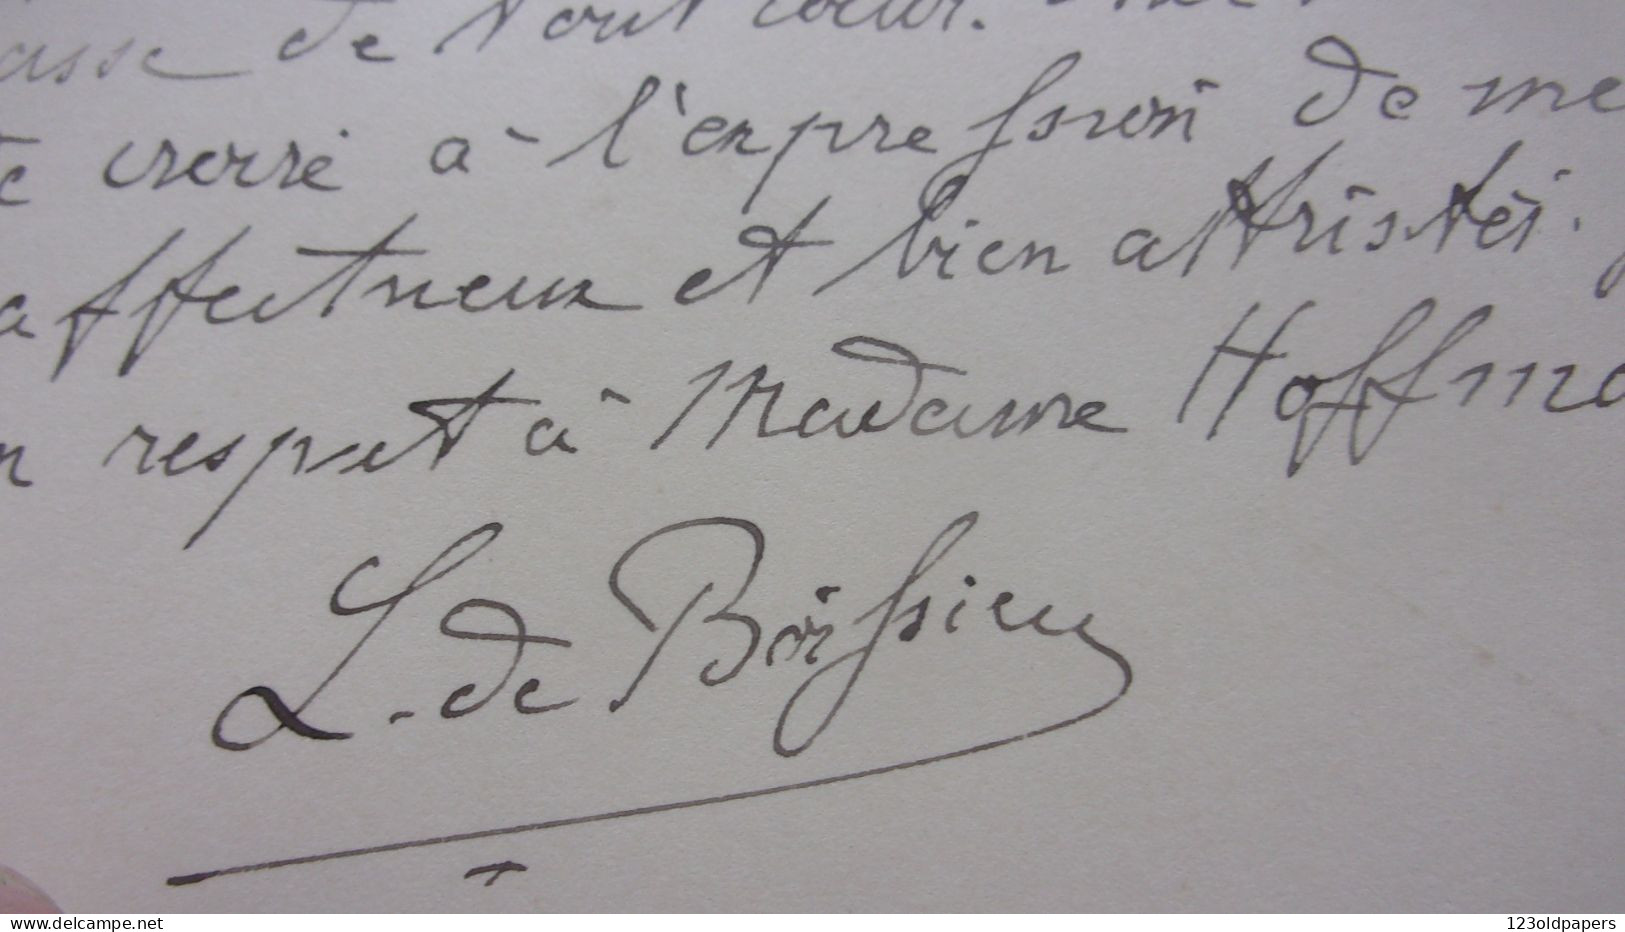 de tout coeur.
croire à l'expression de me
affectueux et bien attristés.
respect à Madame Hoffma
L. de Boissieu
www.delcampe.net
123oldpapers